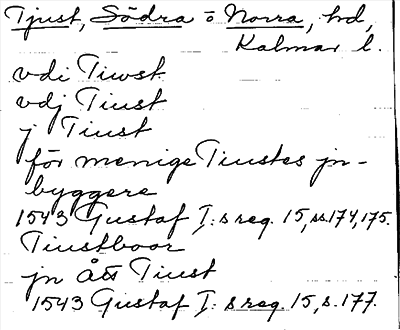 Tjust, Södra o Norra, hd,
Kalmar l.
vdi Tiwst
vdj Tiust
j Tiust
för menige Tiustes jn-
byggere
1543 Gustaf I: s reg. 15, ss. 174, 175.
Tiustboor
jn ått Tiust
1543 Gustaf I: s reg. 15, s. 177.